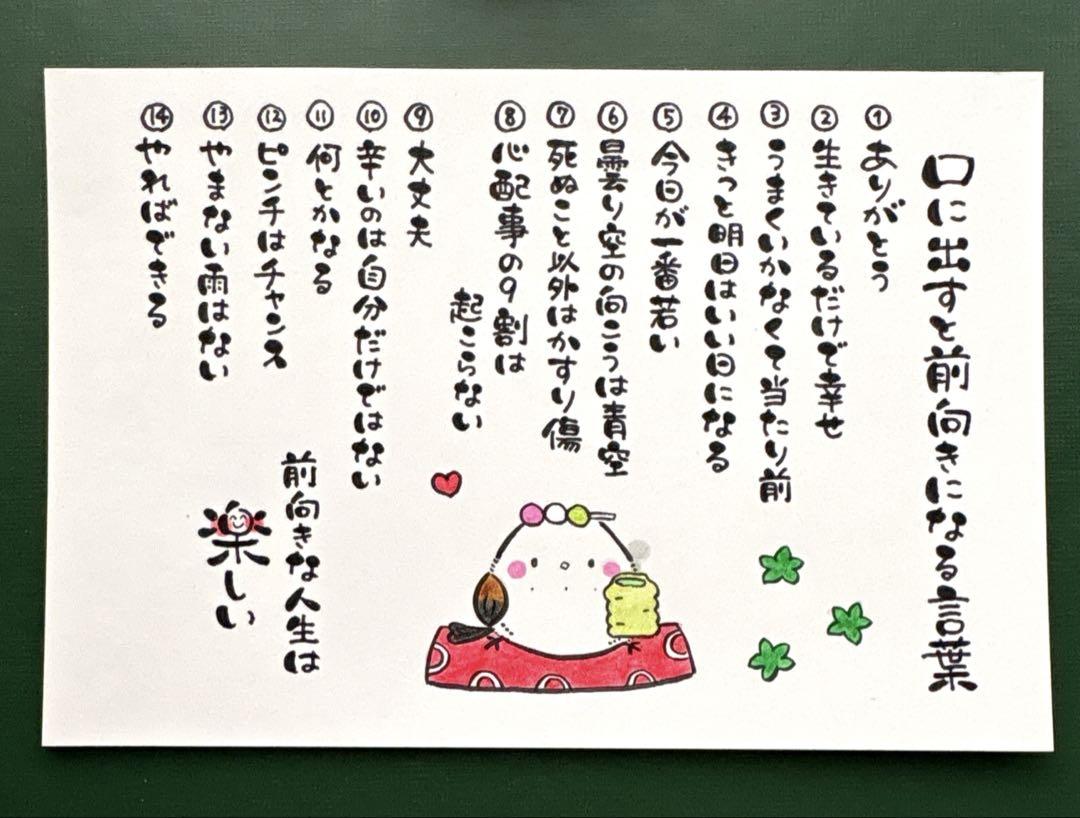 口に出すと前向きになる言葉
①ありがとう
②生きているだけで幸せ
③うまくいかなくて当たり前
④きっと明日はいい日になる
⑤今日が一番若い
⑥曇り空の向こうは青空
⑦死ぬこと以外はかすり傷
⑧心配事の9割は
起こらない
⑨大丈夫
⑩辛いのは自分だけではない
⑪何とかなる
⑫ピンチはチャンス
⑬やまない雨はない
⑭やればできる
前向きな人生は
楽しい